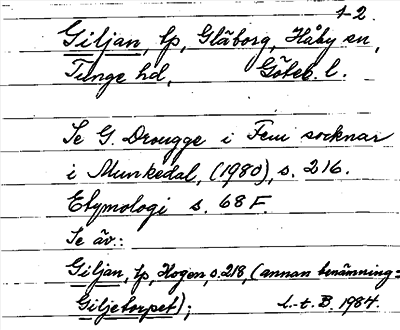 1-2.
Giljan, lp, Glãborg, Håby sn,
Tunge hd, Göteb. l.
Se G. Drougge i Fem socknar
i Munkedal, (1980), s. 216.
Etymologi s. 68 F.
Se äv.:
Giljan, lp, Hogen, s. 218, (annan benämning =
Giljetorpet); L.-t. B. 1984.